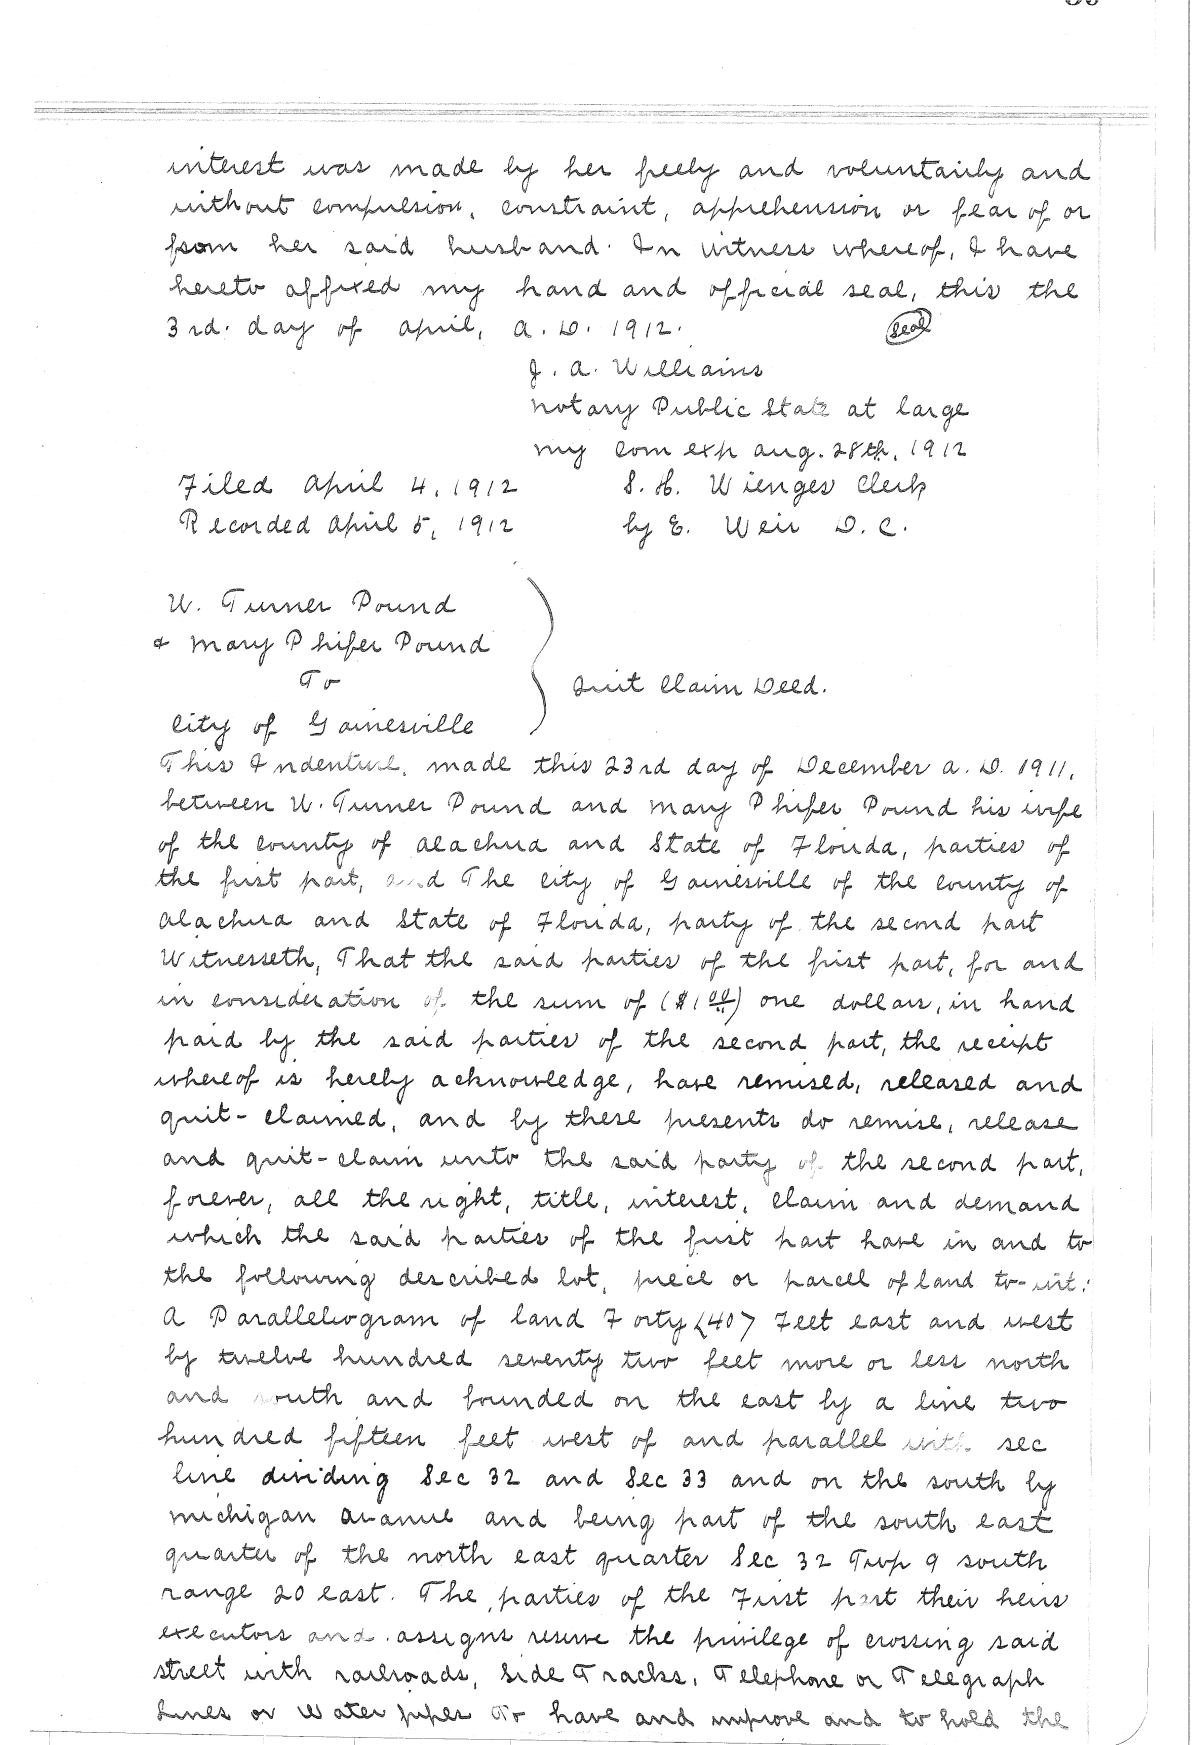 interest was made by her freely and voluntairly and
without compulsion, constraint, apprehension or fear of or
from her said husband. In witness whereof, I have
hereto affixed my hand and official seal, this the
3rd. day of april, a. D. 1912. Seal
J. A. Williams
Notary Public State at large
my Com exp aug. 28th, 1912
Filed april 4, 1912 S. H. Wienges Clerk
Recorded april 5, 1912 by E. Weir D. C.
W. Turner Pound
& Mary Phifer Pound
To
City of Gainesville
Quit Claim Deed.
This Indenture, made this 23rd day of December a. D. 1911,
between W. Turner Pound and Mary Phifer Pound his wife
of the county of alachua and State of Florida, parties of
the first part, and The city of Gainesville of the county of
alachua and State of Florida, party of the second part
Witnesseth, That the said parties of the first part, for and
in consideration of the sum of ($1.00) one dollar, in hand
paid by the said parties of the second part, the receipt
whereof is hereby acknowledge, have remised, released and
quit-claimed, and by these presents do remise, release
and quit-claim unto the said party of the second part,
forever, all the right, title, interest, claim and demand
which the said parties of the first part have in and to
the following described lot, piece or parcell of land to-wit:
A Parallelogram of land Forty (40) Feet east and west
by twelve hundred seventy two feet more or less north
and south and bounded on the east by a line two
hundred fifteen feet west of and parallel with sec
line dividing Sec 32 and Sec 33 and on the south by
michigan avanue and being part of the south east
quarter of the north east quarter Sec 32 Twp 9 south
range 20 east. The parties of the First part their heirs
executors and assigns reserve the privilege of crossing said
street with railroads, Side Tracks, Telephone or Telegraph
Lines or Water pipes To have and improve and to hold the